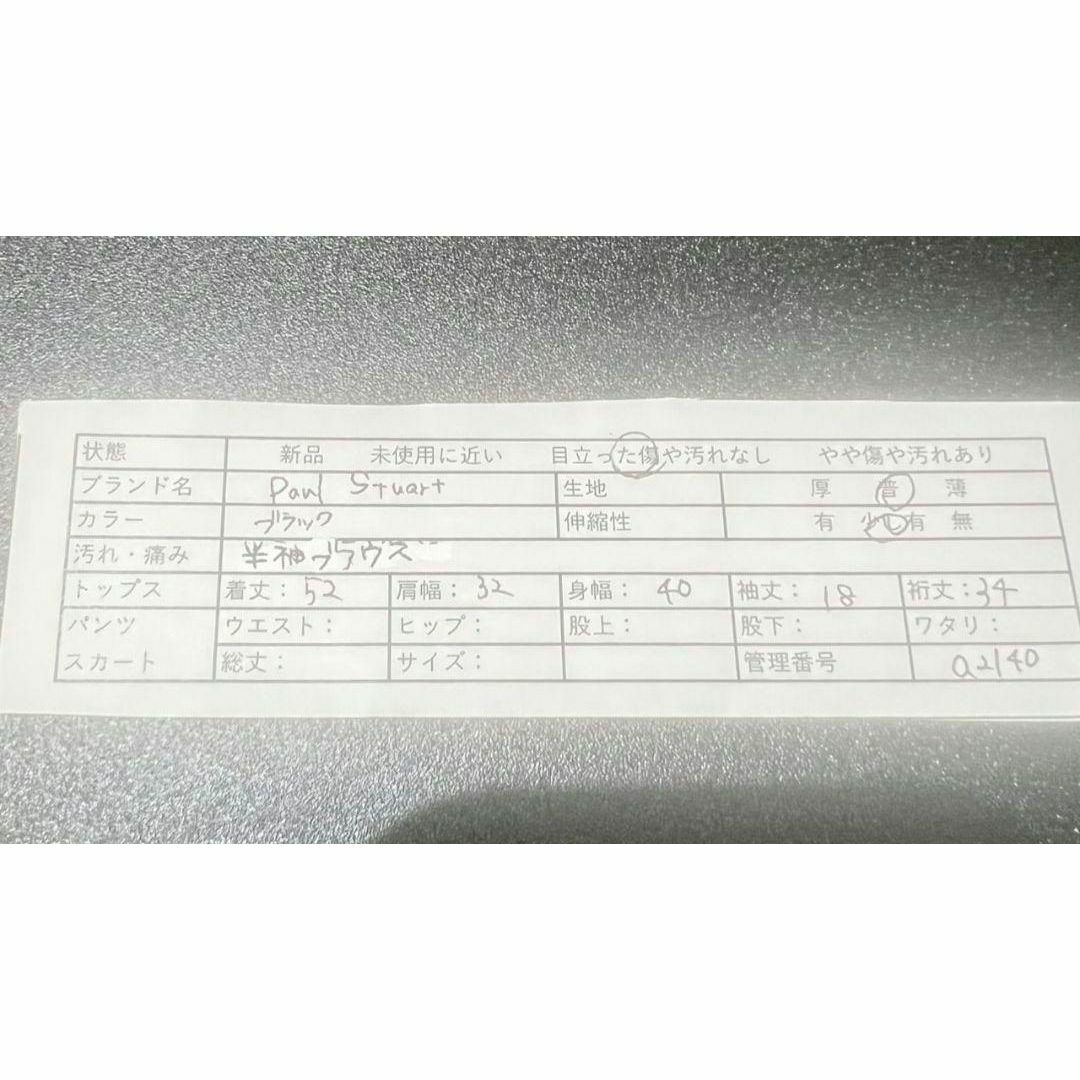 状態 新品 未使用に近い 目立った傷や汚れなし やや傷や汚れあり
ブランド名 Paul Stuart 生地 厚 普 薄
カラー ブラック 伸縮性 有 少し有 無
汚れ・痛み 半袖ブラウス
トップス 着丈:52 肩幅:32 身幅:40 袖丈:18 裄丈:34
パンツ ウエスト: ヒップ: 股上: 股下: ワタリ:
スカート 総丈: サイズ: 管理番号 a2140